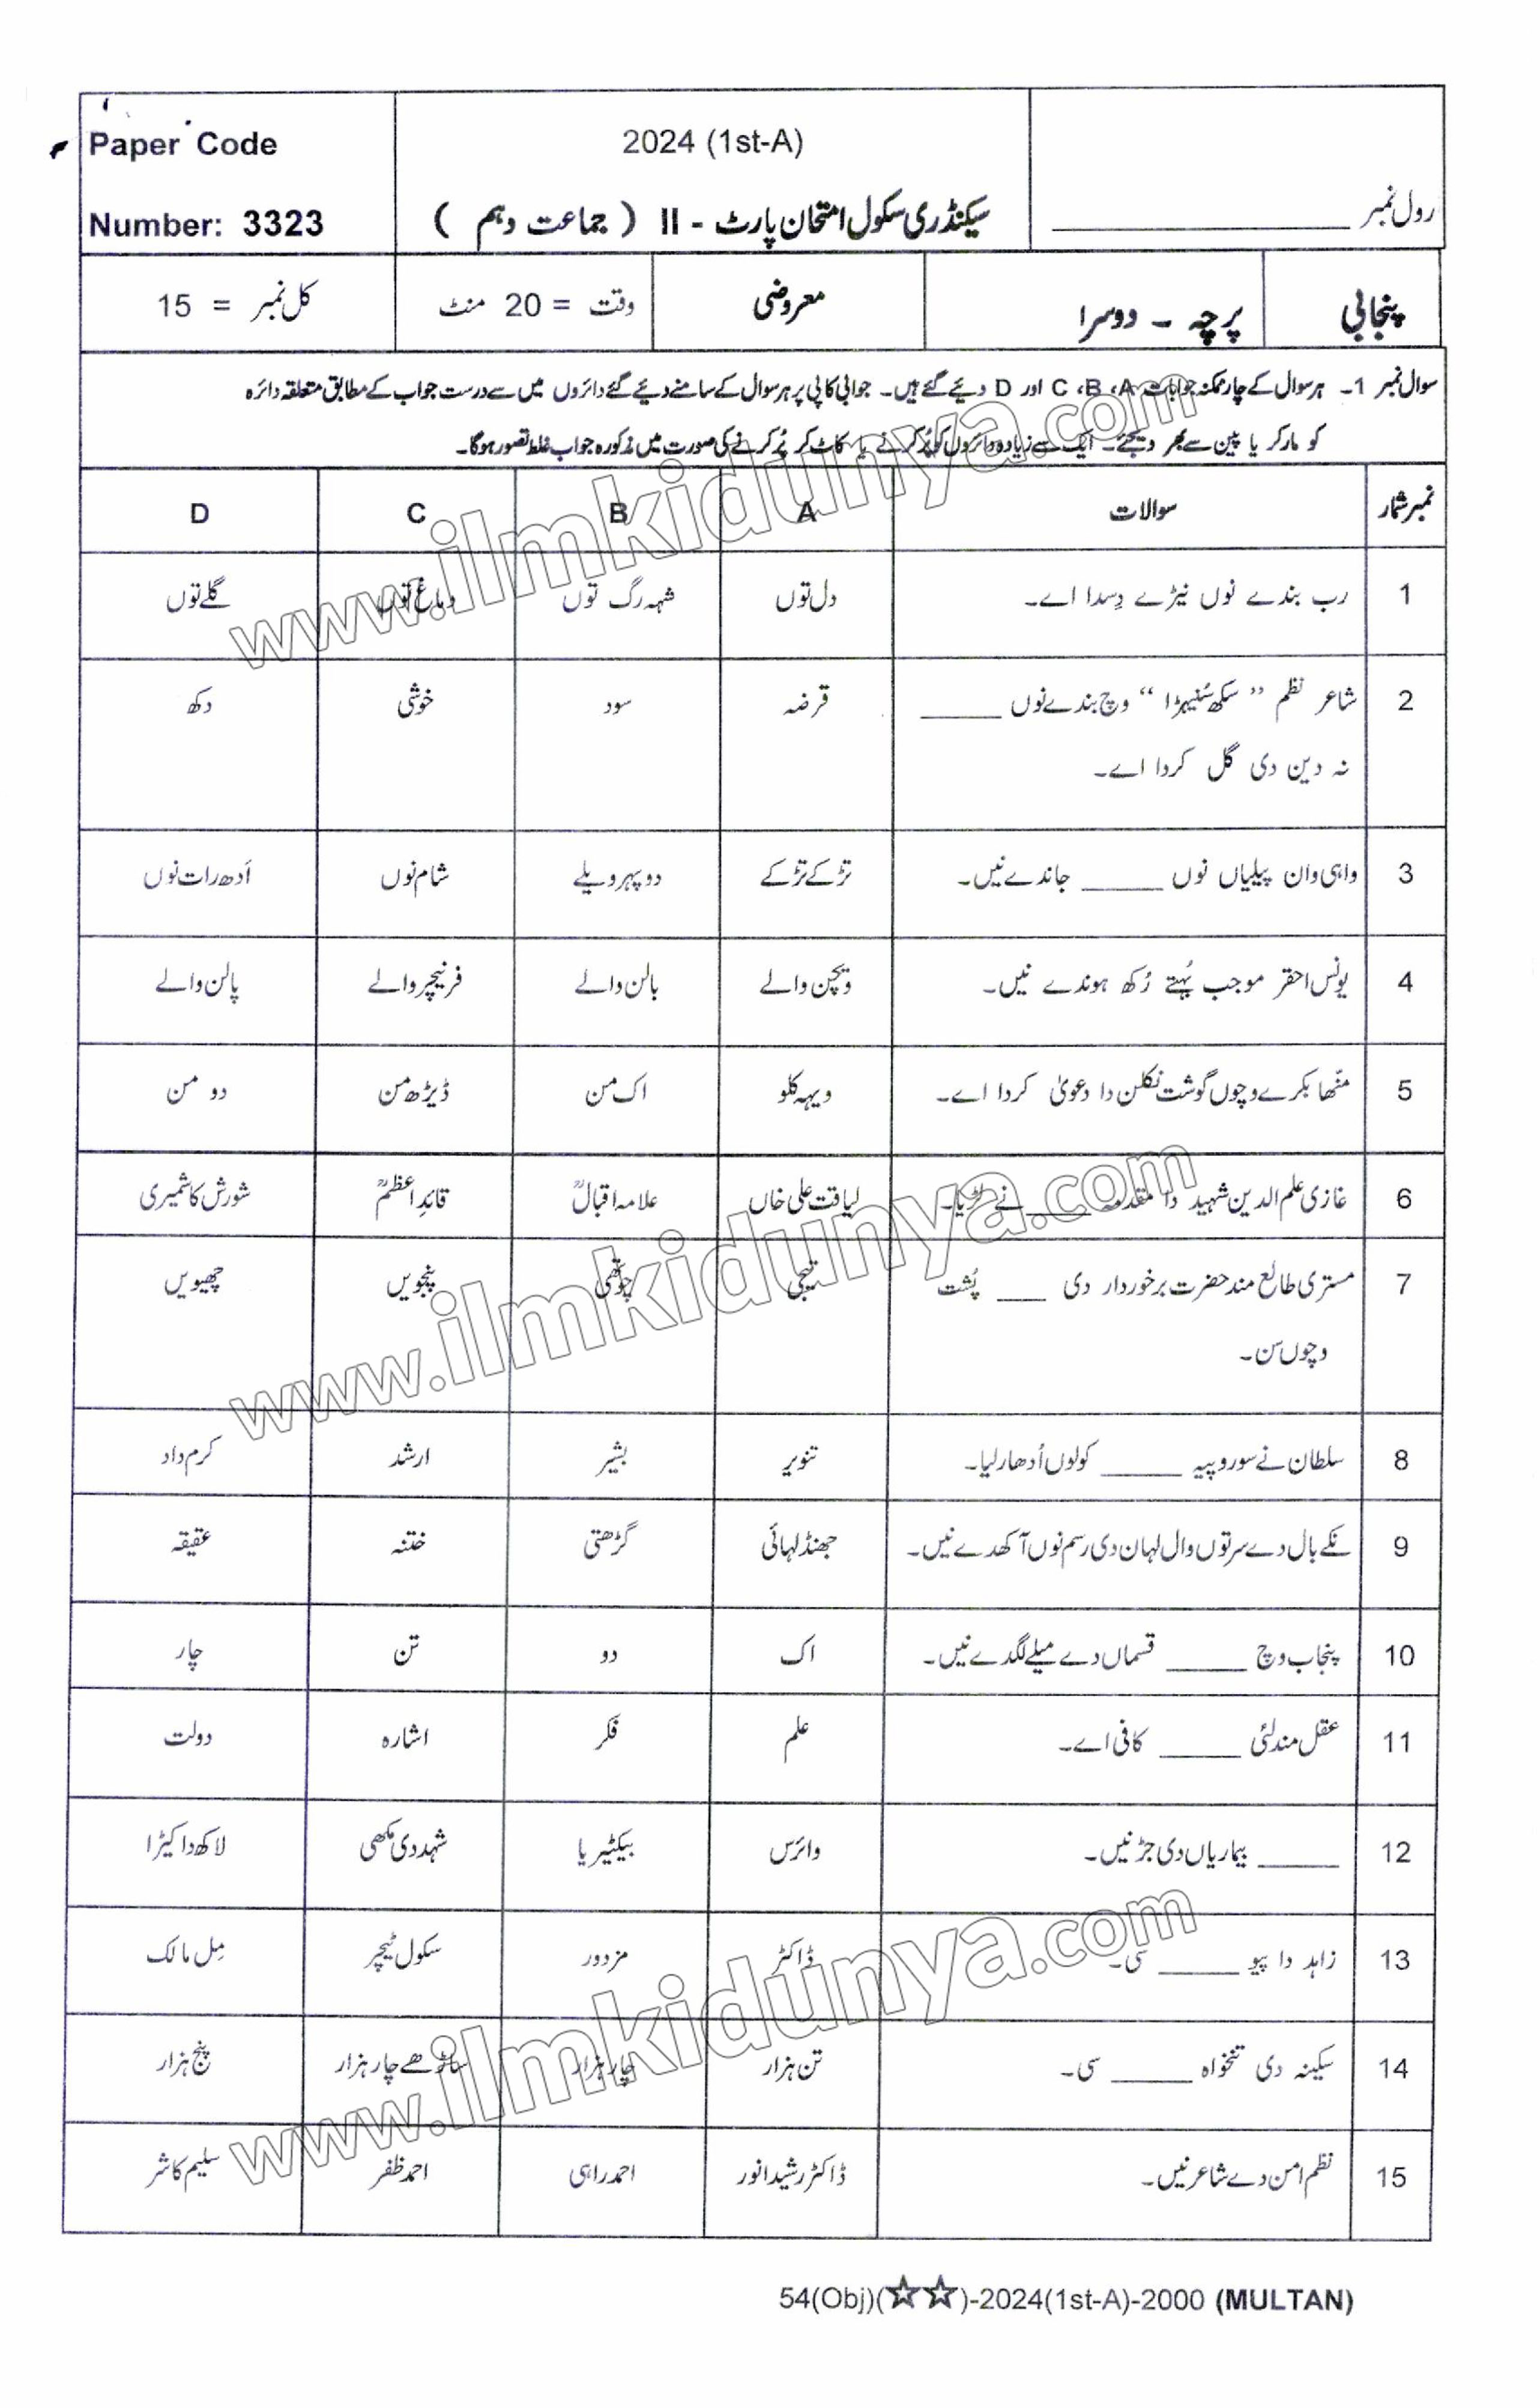 Paper Code
Number: 3323
2024 (1st-A)
سیکنڈری سکول امتحان پارٹ - II ( جماعت دہم )
رول نمبر ____________
پنجابی
پرچہ - دوسرا
معروضی
وقت = 20 منٹ
کل نمبر = 15
سوال نمبر 1- ہر سوال کے چار ممکنہ جوابات C ،B ،A اور D دیئے گئے ہیں۔ جوابی کاپی پر ہر سوال کے سامنے دیئے گئے دائروں میں سے درست جواب کے مطابق متعلقہ دائرہ
کو مارکر یا پین سے بھر دیجئے۔ ایک سے زیادہ دائروں کو پُر کرنے یا کاٹ کر پُر کرنے کی صورت میں مذکورہ جواب غلط تصور ہوگا۔
نمبر شمار سوالات A B C D
1 رب بندے نوں نیڑے دِسدا اے۔ دل توں شہہ رگ توں دماغ توں گلے توں
2 شاعر نظم ” سکھ سُنیہڑا “ وچ بندے نوں ______ قرضہ سود خوشی دکھ
نہ دین دی گل کردا اے۔
3 واہی وان پیلیاں نوں ______ جاندے نیں۔ تڑکے تڑکے دوپہر ویلے شام نوں اَدھ رات نوں
4 یونس احقر موجب بُہتے رُکھ ہوندے نیں۔ ویچن والے بالن والے فرنیچر والے پالن والے
5 مٹھا بکرے وچوں گوشت نکلن دا دعویٰ کردا اے۔ ویہہ کلو اک من ڈیڑھ من دو من
6 غازی علم الدین شہید دا مقدمہ ______ نے لڑیا۔ لیاقت علی خاں علامہ اقبالؒ قائدِ اعظمؒ شورش کاشمیری
7 مستری طالع مند حضرت برخوردار دی ____ پُشت تیجی چوتھی پنجویں چھیویں
وچوں سن۔
8 سلطان نے سو روپیہ ______ کولوں اُدھار لیا۔ تنویر بشیر ارشد کرم داد
9 نکے بال دے سر توں وال لہان دی رسم نوں آکھدے نیں۔ جھنڈ لہائی گڑھتی ختنہ عقیقہ
10 پنجاب وچ ______ قسماں دے میلے لگدے نیں۔ اک دو تن چار
11 عقل مند لئی ______ کافی اے۔ علم فکر اشارہ دولت
12 ______ بیماریاں دی جڑ نیں۔ وائرس بیکٹیریا شہد دی مکھی لاکھ دا کیڑا
13 زاہد دا پیو ______ سی۔ ڈاکٹر مزدور سکول ٹیچر مِل مالک
14 سکینہ دی تنخواہ ______ سی۔ تن ہزار چار ہزار ساڑھے چار ہزار پنج ہزار
15 نظم امن دے شاعر نیں۔ ڈاکٹر رشید انور احمد راہی احمد ظفر سلیم کاشر
54(Obj)(☆☆)-2024(1st-A)-2000 (MULTAN)
www.ilmkidunya.com
www.ilmkidunya.com
www.ilmkidunya.com